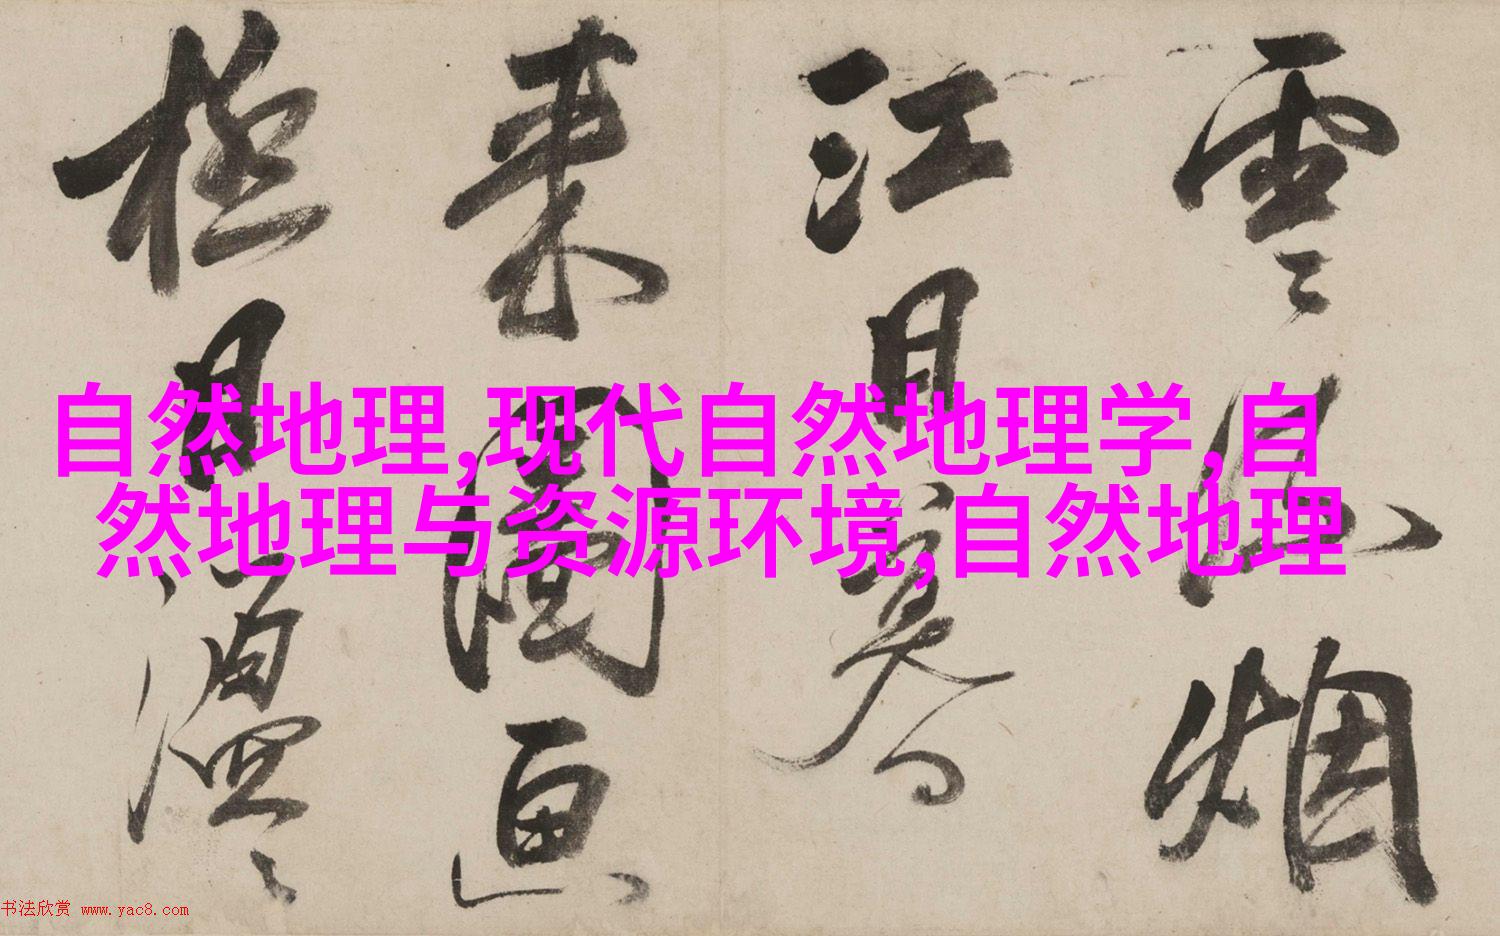 雲
烟
江
来圖画
極目
自然地理,现代自然地理学,自
然地理与资源环境,自然地理
书法欣赏 www.yac8.com